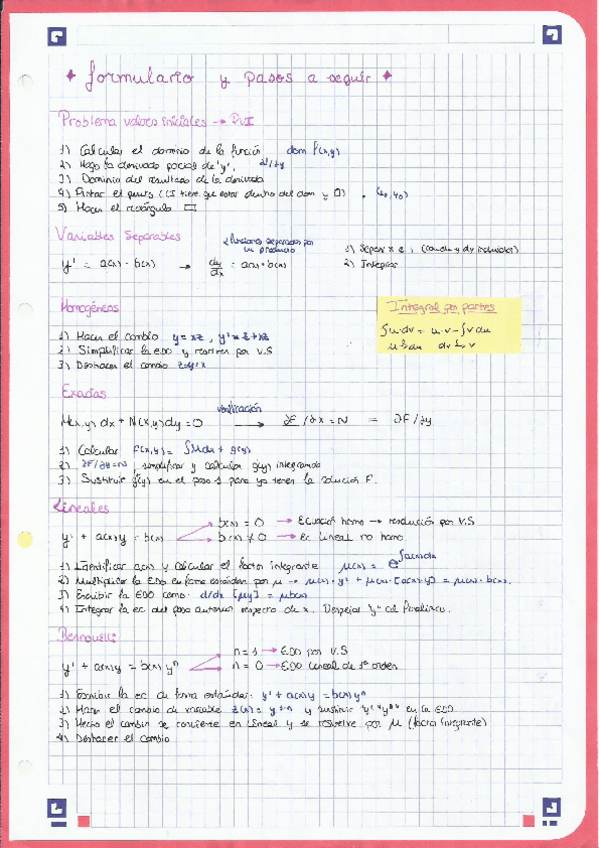 ✦ formulario y pasos a seguir ✦
Problema valores iniciales → PVI
1) Calcular el dominio de la función dom f(x,y)
2) Hago la derivada parcial de 'y', ∂f/∂y
3) Dominio del resultado de la derivada
4) Pintar el punto (CI tiene que estar dentro del dom y D) • (x₀,y₀)
5) Hacer el rectángulo ▭
Variables Separables
2 funciones separadas por un producto
y' = a(x) · b(x) → dy/dx = a(x) · b(x)
1) Separar x e y (con dx y dy incluidos)
2) Integrar
Homogéneas
1) Hacer el cambio y = xz, y' = z + xz'
2) Simplificar la EDO y resolver por V.S
3) Deshacer el cambio z=y/x
Integral por partes
∫u·dv = u·v - ∫v du
Exactas
M(x,y) dx + N(x,y) dy = 0 verificación → ∂F/∂x = N = ∂F/∂y
1) Calcular F(x,y) = ∫M dx + g(y)
2) ∂F/∂y = N, simplificar y calcular g(y) integrando
3) Sustituir g(y) en el paso 1 para ya tener la solución F.
Lineales
y' + a(x)y = b(x)
b(x) = 0 → Ecuación homo → resolución por V.S
b(x) ≠ 0 → ec Lineal no homo
1) Identificar a(x) y calcular el factor integrante μ(x) = e^∫a(x)dx
2) Multiplicar la EDO en forma estándar por μ → μ(x)·y' + μ(x)·[a(x)·y] = μ(x)·b(x).
3) Escribir la EDO como: d/dx [μy] = μb(x)
4) Integrar la ec del paso anterior respecto de x. Despejar "y" al final.
Bernoulli:
y' + a(x)y = b(x) yⁿ
n = 1 → EDO por V.S
n = 0 → EDO Lineal de 1º orden
1) Escribir la ec de forma estándar: y' + a(x)y = b(x)yⁿ
2) Hacer el cambio de variable z(x) = y¹⁻ⁿ y sustituir en la EDO
3) Hecho el cambio se convierte en Lineal y se resuelve por μ (factor integrante)
4) Deshacer el cambio